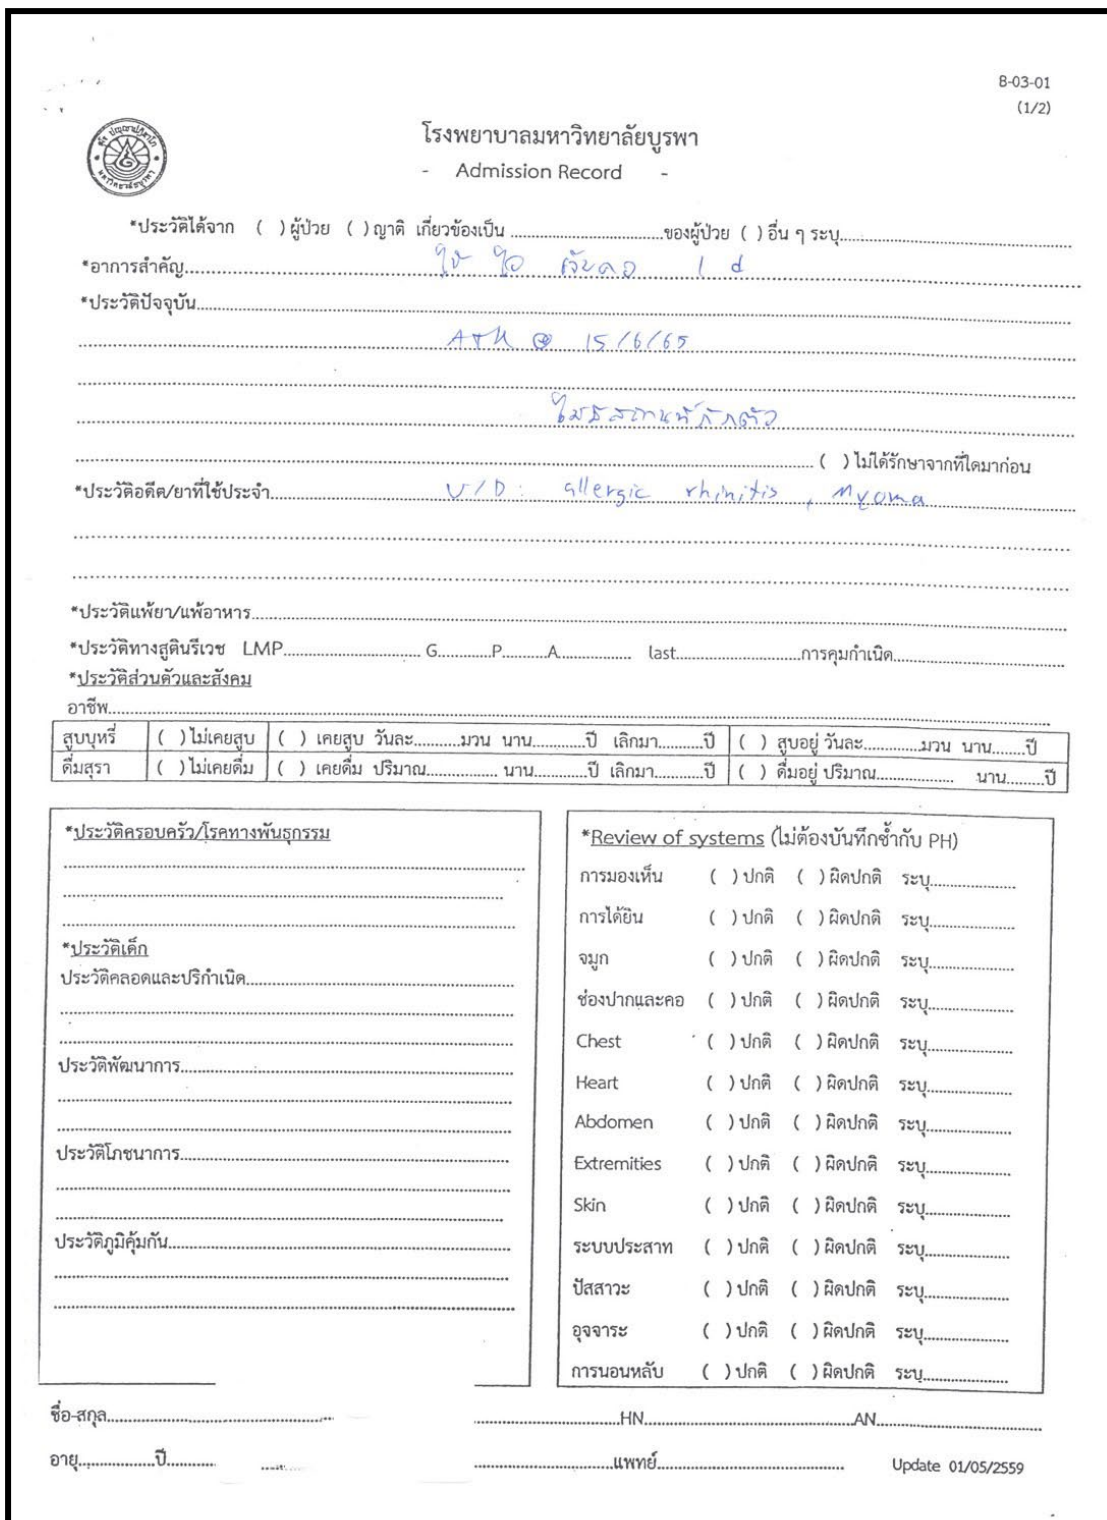 B-03-01
(1/2)
โรงพยาบาลมหาวิทยาลัยบูรพา
- Admission Record -
*ประวัติได้จาก ( ) ผู้ป่วย ( ) ญาติ เกี่ยวข้องเป็น ..............................ของผู้ป่วย ( ) อื่น ๆ ระบุ..............................
*อาการสำคัญ.............................. ไข้ ไอ เจ็บคอ 1 d
*ประวัติปัจจุบัน..............................
ATK ⊕ 15/6/65
ไม่มีสถานที่กักตัว
( ) ไม่ได้รักษาจากที่ใดมาก่อน
*ประวัติอดีต/ยาที่ใช้ประจำ.............................. U/D : allergic rhinitis , Myoma
*ประวัติแพ้ยา/แพ้อาหาร..............................
*ประวัติทางสูตินรีเวช LMP.............................. G............P..........A................ last..........................การคุมกำเนิด..............................
*ประวัติส่วนตัวและสังคม
อาชีพ..............................
สูบบุหรี่ ( ) ไม่เคยสูบ ( ) เคยสูบ วันละ...........มวน นาน............ปี เลิกมา..........ปี ( ) สูบอยู่ วันละ.............มวน นาน.......ปี
ดื่มสุรา ( ) ไม่เคยดื่ม ( ) เคยดื่ม ปริมาณ................ นาน............ปี เลิกมา...........ปี ( ) ดื่มอยู่ ปริมาณ................. นาน.........ปี
*ประวัติครอบครัว/โรคทางพันธุกรรม
*ประวัติเด็ก
ประวัติคลอดและปริกำเนิด..............................
ประวัติพัฒนาการ..............................
ประวัติโภชนาการ..............................
ประวัติภูมิคุ้มกัน..............................
*Review of systems (ไม่ต้องบันทึกซ้ำกับ PH)
การมองเห็น ( ) ปกติ ( ) ผิดปกติ ระบุ...................
การได้ยิน ( ) ปกติ ( ) ผิดปกติ ระบุ...................
จมูก ( ) ปกติ ( ) ผิดปกติ ระบุ...................
ช่องปากและคอ ( ) ปกติ ( ) ผิดปกติ ระบุ...................
Chest ( ) ปกติ ( ) ผิดปกติ ระบุ...................
Heart ( ) ปกติ ( ) ผิดปกติ ระบุ...................
Abdomen ( ) ปกติ ( ) ผิดปกติ ระบุ...................
Extremities ( ) ปกติ ( ) ผิดปกติ ระบุ...................
Skin ( ) ปกติ ( ) ผิดปกติ ระบุ...................
ระบบประสาท ( ) ปกติ ( ) ผิดปกติ ระบุ...................
ปัสสาวะ ( ) ปกติ ( ) ผิดปกติ ระบุ...................
อุจจาระ ( ) ปกติ ( ) ผิดปกติ ระบุ...................
การนอนหลับ ( ) ปกติ ( ) ผิดปกติ ระบุ...................
ชื่อ-สกุล..............................HN..............................AN..............................
อายุ.................ปี..............................แพทย์.............................. Update 01/05/2559